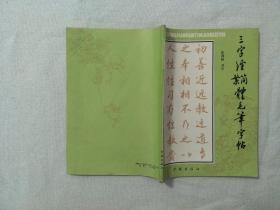 三字經繁简體毛筆字帖
人之初
性本善
性相近
习相远
苟不教
性乃迁
教之道
贵以专